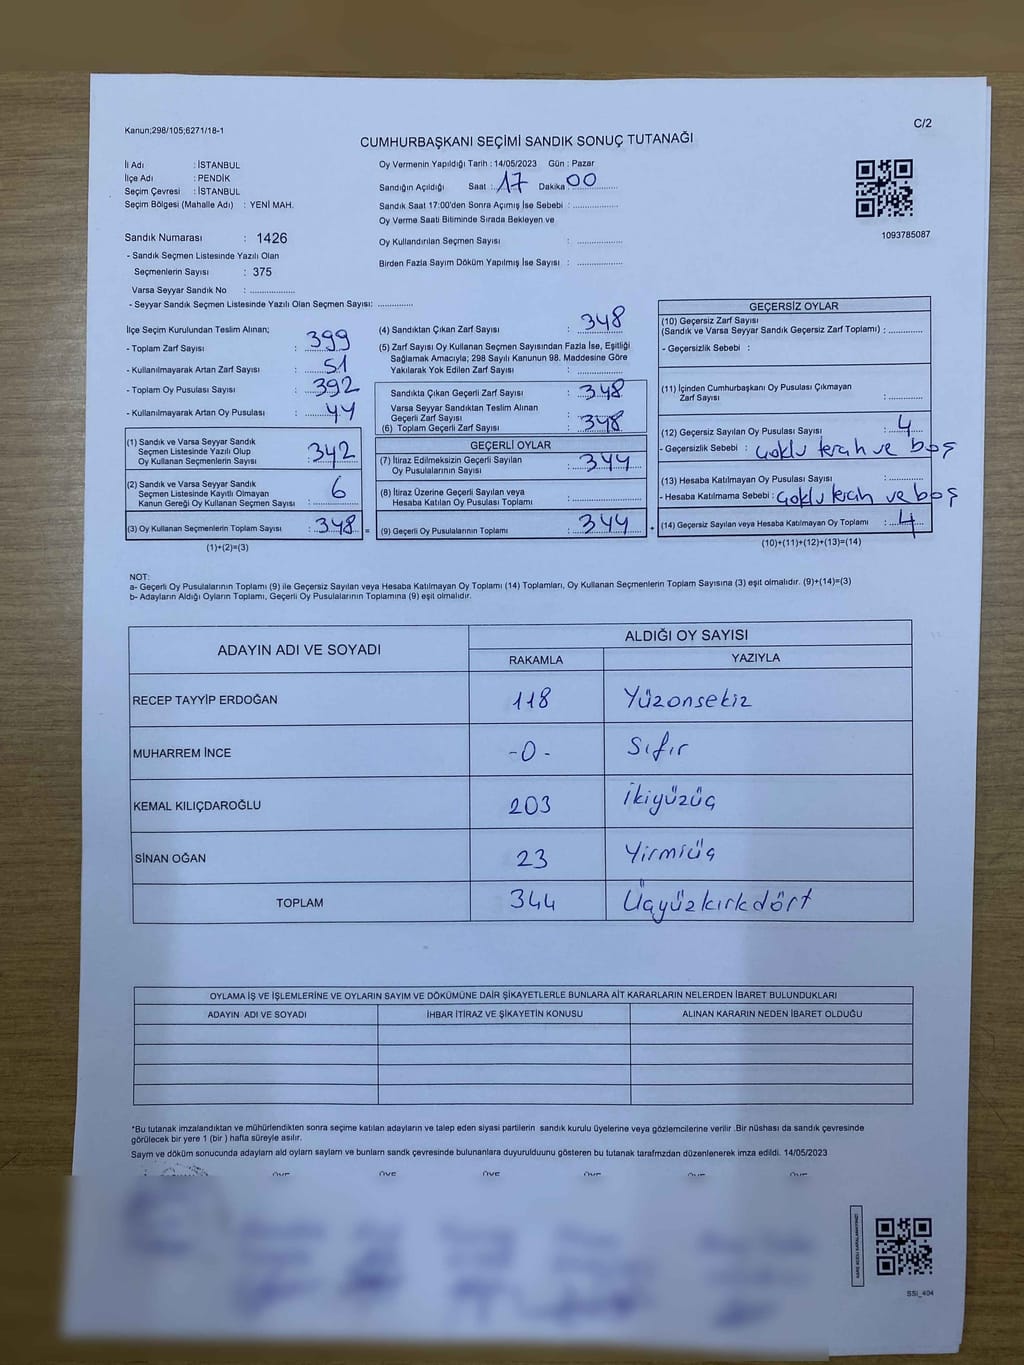 C/2
Kanun;298/105;6271/18-1
CUMHURBAŞKANI SEÇİMİ SANDIK SONUÇ TUTANAĞI
İl Adı : İSTANBUL
İlçe Adı : PENDİK
Seçim Çevresi : İSTANBUL
Seçim Bölgesi (Mahalle Adı) : YENİ MAH.
Oy Vermenin Yapıldığı Tarih : 14/05/2023 Gün : Pazar
Sandığın Açıldığı Saat : 17 Dakika 00
Sandık Saat 17:00'den Sonra Açımış İse Sebebi : ..............
Oy Verme Saati Bitiminde Sırada Bekleyen ve
Oy Kullandırılan Seçmen Sayısı : ..............
Birden Fazla Sayım Döküm Yapılmış İse Sayısı : ..............
1093785087
Sandık Numarası : 1426
- Sandık Seçmen Listesinde Yazılı Olan
Seçmenlerin Sayısı : 375
Varsa Seyyar Sandık No : ..............
- Seyyar Sandık Seçmen Listesinde Yazılı Olan Seçmen Sayısı: ............
İlçe Seçim Kurulundan Teslim Alınan;
- Toplam Zarf Sayısı : 399
- Kullanılmayarak Artan Zarf Sayısı : 51
- Toplam Oy Pusulası Sayısı : 392
- Kullanılmayarak Artan Oy Pusulası : 44
(1) Sandık ve Varsa Seyyar Sandık
Seçmen Listesinde Yazılı Olup
Oy Kullanan Seçmenlerin Sayısı : 342
(2) Sandık ve Varsa Seyyar Sandık
Seçmen Listesinde Kayıtlı Olmayan
Kanun Gereği Oy Kullanan Seçmen Sayısı : 6
(3) Oy Kullanan Seçmenlerin Toplam Sayısı : 348 =
(1)+(2)=(3)
(4) Sandıktan Çıkan Zarf Sayısı : 348
(5) Zarf Sayısı Oy Kullanan Seçmen Sayısından Fazla İse, Eşitliği
Sağlamak Amacıyla; 298 Sayılı Kanunun 98. Maddesine Göre
Yakılarak Yok Edilen Zarf Sayısı : ..............
Sandıkta Çıkan Geçerli Zarf Sayısı : 348
Varsa Seyyar Sandıktan Teslim Alınan
Geçerli Zarf Sayısı :
(6) Toplam Geçerli Zarf Sayısı : 348
GEÇERLİ OYLAR
(7) İtiraz Edilmeksizin Geçerli Sayılan
Oy Pusulalarının Sayısı : 344
(8) İtiraz Üzerine Geçerli Sayılan veya
Hesaba Katılan Oy Pusulası Toplamı : ..............
(9) Geçerli Oy Pusulalarının Toplamı : 344 +
GEÇERSİZ OYLAR
(10) Geçersiz Zarf Sayısı
(Sandık ve Varsa Seyyar Sandık Geçersiz Zarf Toplamı) : ............
- Geçersizlik Sebebi :
(11) İçinden Cumhurbaşkanı Oy Pusulası Çıkmayan
Zarf Sayısı : ............
(12) Geçersiz Sayılan Oy Pusulası Sayısı : 4
- Geçersizlik Sebebi : çoklu tercih ve boş
(13) Hesaba Katılmayan Oy Pusulası Sayısı : ............
- Hesaba Katılmama Sebebi : çoklu tercih ve boş
(14) Geçersiz Sayılan veya Hesaba Katılmayan Oy Toplamı : 4
(10)+(11)+(12)+(13)=(14)
NOT:
a- Geçerli Oy Pusulalarının Toplamı (9) ile Geçersiz Sayılan veya Hesaba Katılmayan Oy Toplamı (14) Toplamları, Oy Kullanan Seçmenlerin Toplam Sayısına (3) eşit olmalıdır. (9)+(14)=(3)
b- Adayların Aldığı Oyların Toplamı, Geçerli Oy Pusulalarının Toplamına (9) eşit olmalıdır.
ADAYIN ADI VE SOYADI ALDIĞI OY SAYISI
RAKAMLA YAZIYLA
RECEP TAYYİP ERDOĞAN 118 Yüzonsekiz
MUHARREM İNCE -0- Sıfır
KEMAL KILIÇDAROĞLU 203 İkiyüzüç
SİNAN OĞAN 23 Yirmiüç
TOPLAM 344 Üçyüzkırkdört
OYLAMA İŞ VE İŞLEMLERİNE VE OYLARIN SAYIM VE DÖKÜMÜNE DAİR ŞİKAYETLERLE BUNLARA AİT KARARLARIN NELERDEN İBARET BULUNDUKLARI
ADAYIN ADI VE SOYADI İHBAR İTİRAZ VE ŞİKAYETİN KONUSU ALINAN KARARIN NEDEN İBARET OLDUĞU
*Bu tutanak imzalandıktan ve mühürlendikten sonra seçime katılan adayların ve talep eden siyasi partilerin sandık kurulu üyelerine veya gözlemcilerine verilir .Bir nüshası da sandık çevresinde
görülecek bir yere 1 (bir ) hafta süreyle asılır.
Sayım ve döküm sonucunda adayların ald oyların sayıları ve bunların sandk çevresinde bulunanlara duyurulduunu gösteren bu tutanak tarafmzdan düzenlenerek imza edildi. 14/05/2023
SSİ_404